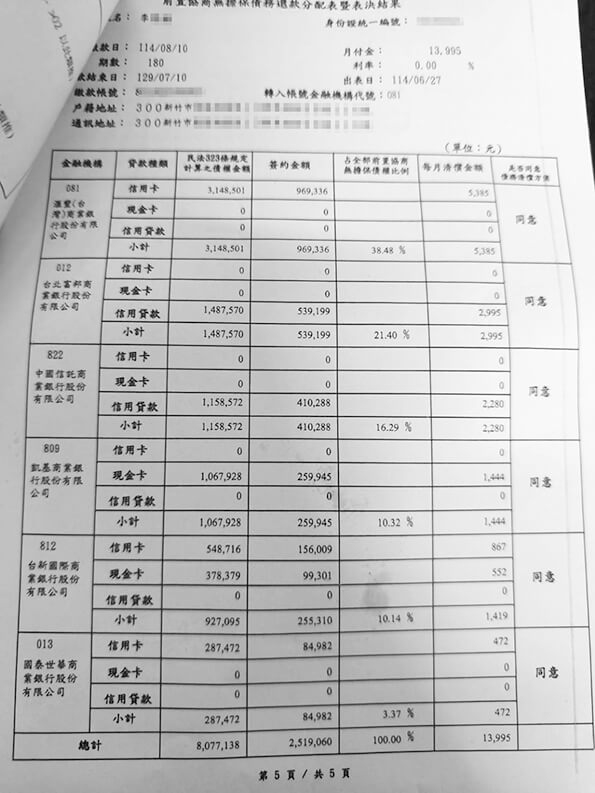 前置協商無擔保債務還款分配表暨表決結果
名： 李
身份證統一編號：
繳款日： 114/08/10
月付金： 13,995
期數： 180
利率： 0.00 %
款結束日： 129/07/10
出表日： 114/06/27
繳款帳號： 8
轉入帳號金融機構代號：081
戶籍地址： 300新竹市
通訊地址： 300新竹市
（單位：元）
金融機構 貸款種類 民法323條規定計算之債權金額 簽約金額 占全部前置協商無擔保債權比例 每月清償金額 是否同意債務清償方案
081 滙豐(台灣)商業銀行股份有限公司 信用卡 3,148,501 969,336 5,385 同意
現金卡 0 0 0
信用貸款 0 0 0
小計 3,148,501 969,336 38.48 % 5,385
012 台北富邦商業銀行股份有限公司 信用卡 0 0 0 同意
現金卡 0 0 0
信用貸款 1,487,570 539,199 2,995
小計 1,487,570 539,199 21.40 % 2,995
822 中國信託商業銀行股份有限公司 信用卡 0 0 0 同意
現金卡 0 0 0
信用貸款 1,158,572 410,288 2,280
小計 1,158,572 410,288 16.29 % 2,280
809 凱基商業銀行股份有限公司 信用卡 0 0 0 同意
現金卡 1,067,928 259,945 1,444
信用貸款 0 0 0
小計 1,067,928 259,945 10.32 % 1,444
812 台新國際商業銀行股份有限公司 信用卡 548,716 156,009 867 同意
現金卡 378,379 99,301 552
信用貸款 0 0 0
小計 927,095 255,310 10.14 % 1,419
013 國泰世華商業銀行股份有限公司 信用卡 287,472 84,982 472 同意
現金卡 0 0 0
信用貸款 0 0 0
小計 287,472 84,982 3.37 % 472
總計 8,077,138 2,519,060 100.00 % 13,995
第 5 頁 / 共 5 頁